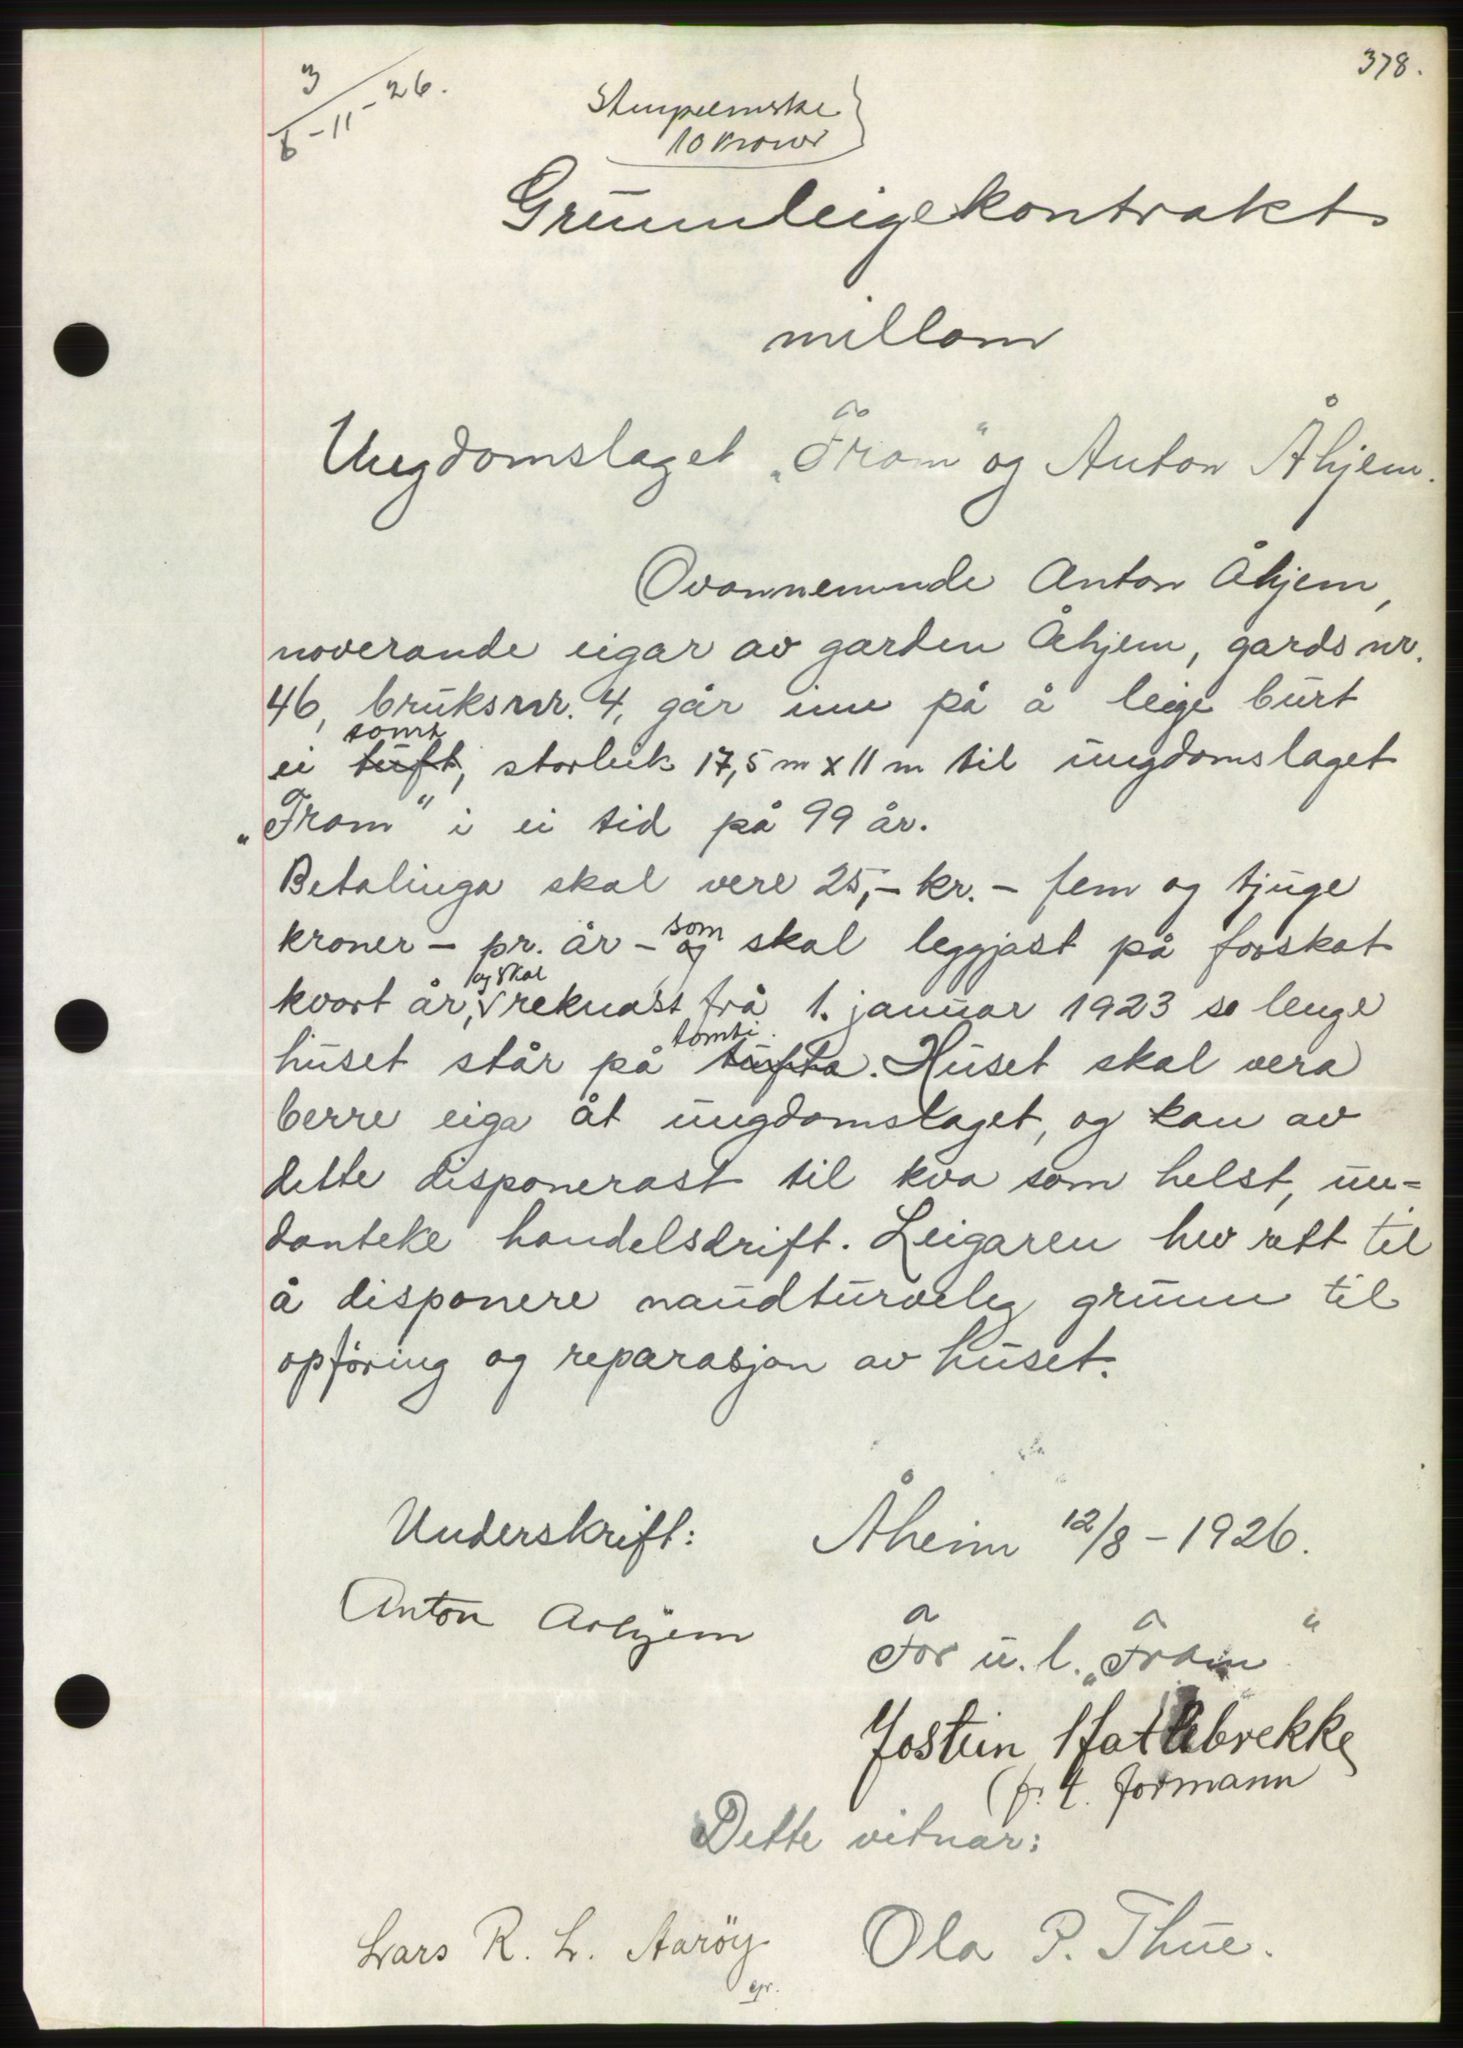 378.
3/6-11-26.
Stempelmerke
10 kroner
Grunnleigekontrakt
millom
Ungdomslaget „Fram“ og Anton Åhjem.
Ovannemnde Anton Åhjem,
noverande eigar av garden Åhjem, gards nr.
46, bruksnr. 4, går inn på å leige burt
tomt
ei tuft, storleik 17,5 m x 11 m til ungdomslaget
„Fram“ i ei tid på 99 år.
Betalinga skal vere 25,- kr. - fem og tjuge
som
kroner - pr. år - og skal leggjast på forskot
og skal
kvort år, reknast frå 1. januar 1923 so lenge
tomti.
huset står på tufta. Huset skal vera
berre eiga åt ungdomslaget, og kan av
dette disponerast til kva som helst, un=
danteke handelsdrift. Leigaren hev rett til
å disponere naudturveleg grunn til
opføring og reparasjon av huset.
Underskrift: Åheim 12/8 - 1926.
Anton Aahjem
For u. l. „Fram“
Jostein Hatlebrekke
(p. t. formann
Dette vitnar:
Lars R. L. Aarøy Ola P. Thue.